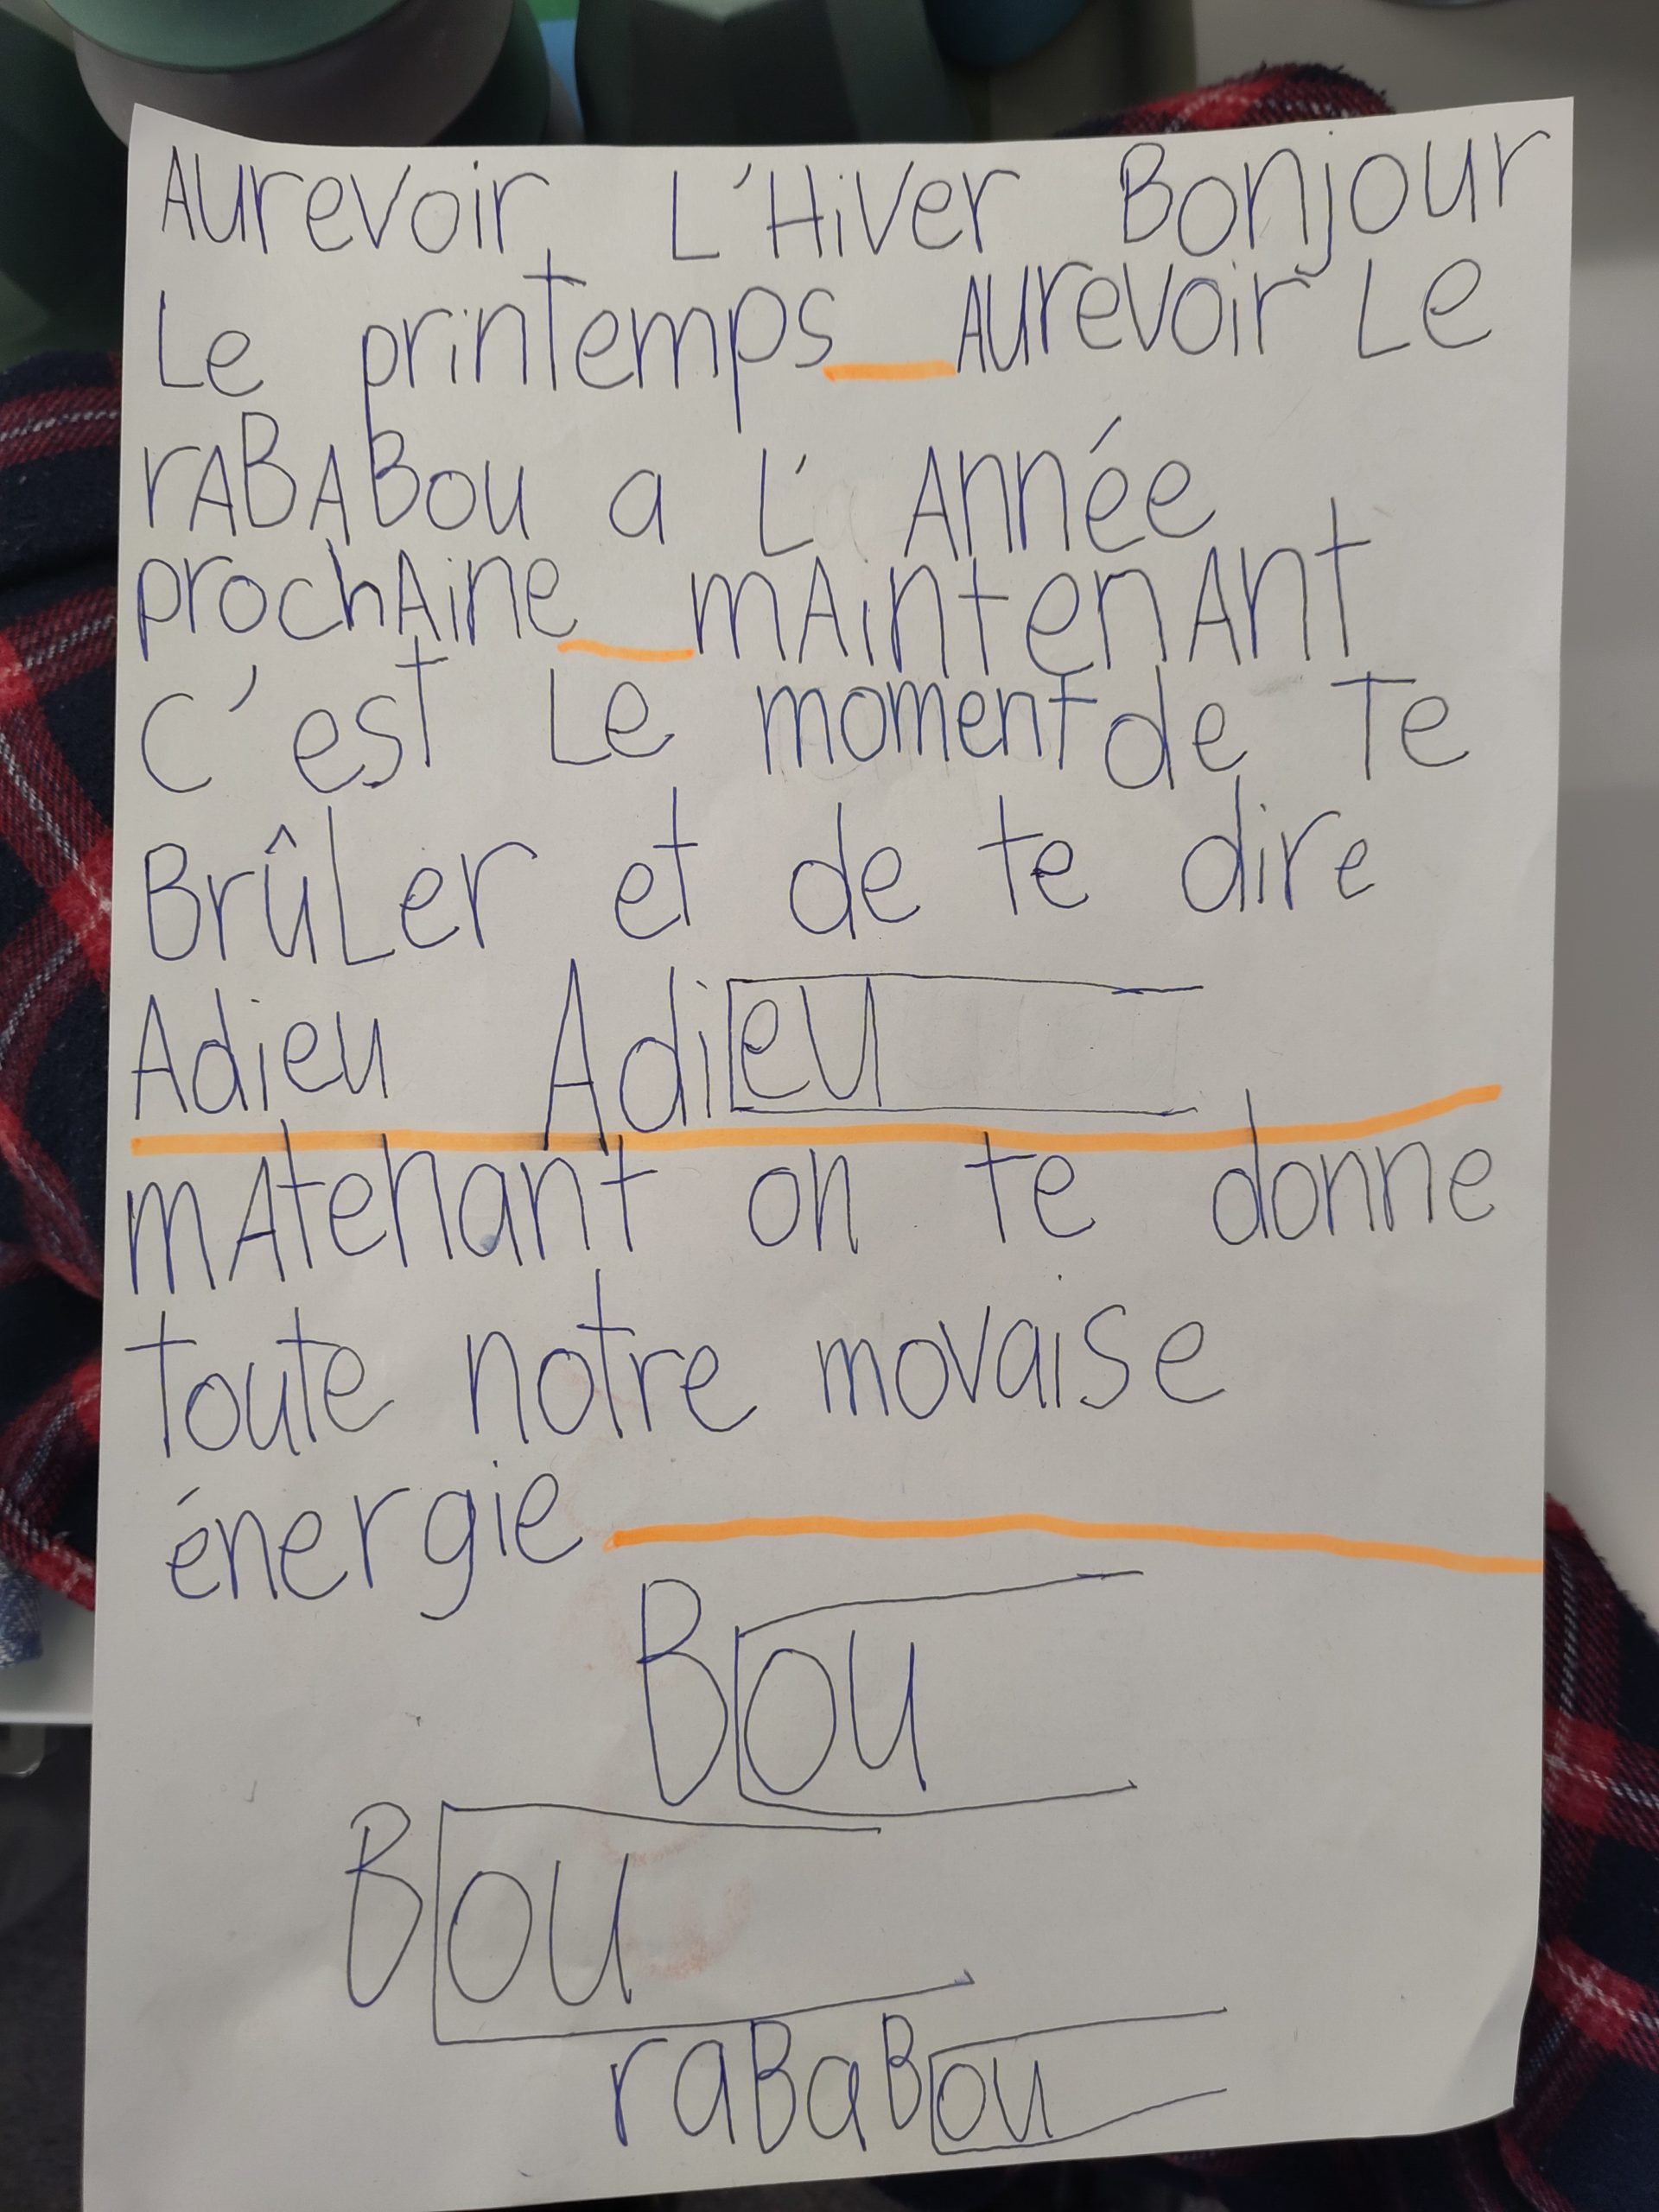 AUrevoir L'HiVer BonJour
Le printemps AUrevoir Le
rABABou a L' Année
prochAine mAintenAnt
c'est Le moment de Te
BrûLer et de te dire
Adieu Adieu
mAtenant on te donne
toute notre movaise
énergie
Bou
Bou
raBaBou